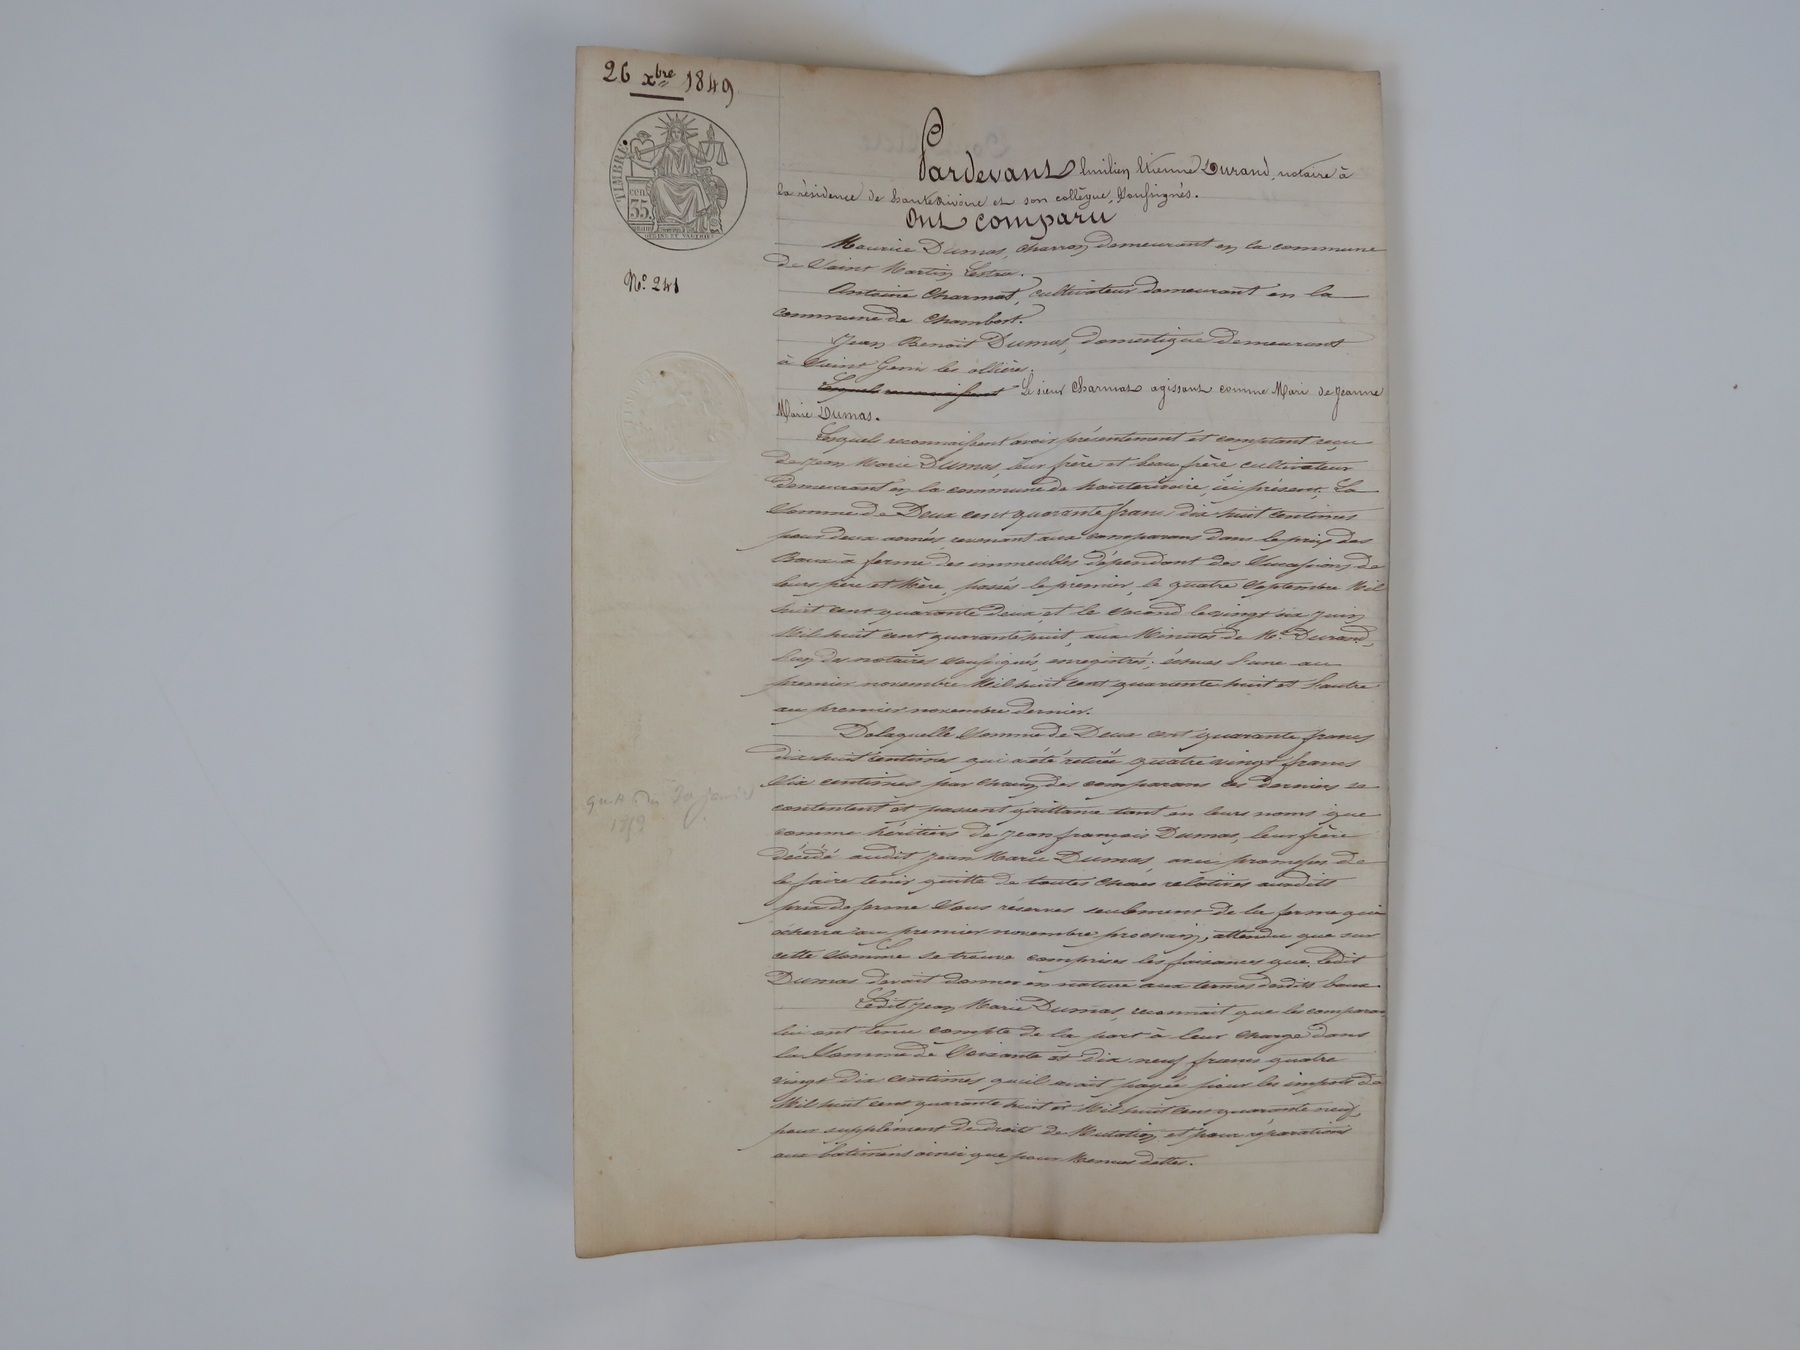 26 xbre 1849
TIMBRE
cen.
35.
N.° 241
Pardevant Emilien Etienne Durand, notaire à
la résidence de hauterivoire et son collègue, Soussignés.
Ont comparu
Maurice Dumas, charron demeurant en la commune
de Saint Martin Lestra.
Antoine Charmat, cultivateur demeurant en la
commune de Chambost.
Jean Benoit Dumas, domestique demeurant
à Saint Genis les ollière.
Lesquels reconnaissent Le sieur Charmat agissant comme Mari de Jeanne
Marie Dumas.
Lesquels reconnaissent avoir présentement et comptant reçu
de Jean Marie Dumas, leur frère et beau frère, cultivateur
demeurant en la commune de hauterivoire, ici présent, La
Somme de Deux cent quarante francs dix huit centimes
pour deux années revenant aux comparans dans le prix des
Baux à ferme des immeubles dépendant des Successions de
leurs père et Mère, passés le premier, le quatre Septembre Mil
huit cent quarante deux, et le Second le vingt six Juin
Mil huit cent quarante huit, aux Minutes de Me Durand,
l'un des notaires soussignés, enregistrés, échues l'une au
premier novembre Mil huit cent quarante huit et l'autre
au premier novembre dernier.
De laquelle Somme de Deux cent quarante francs
dix huit centimes qui a été retirée quatre vingt francs
Six centimes par chacun des comparans ces derniers se
contentent et passent quittance tant en leurs noms que
comme héritiers de Jean françois Dumas, leur frère
décédé audit Jean Marie Dumas, avec promesse de
le faire tenir quitte de toutes choses relatives auxdits
prix de ferme Sous réserves seulement de la ferme qui
écherra au premier novembre prochain, attendu que sur
cette Somme se trouve comprises les faisances que ledit
Dumas devait donner en nature aux termes desdits baux.
Ledit Jean Marie Dumas, reconnait que les comparans
lui ont tenu compte de la part à leur charge dans
la Somme de Soixante et dix neuf francs quatre
vingt dix centimes qu'il avait payée pour les impots de
Mil huit cent quarante huit et Mil huit cent quarante neuf,
pour supplément de droits de Mutation et pour réparations
aux batimens ainsi que pour Menues dettes.